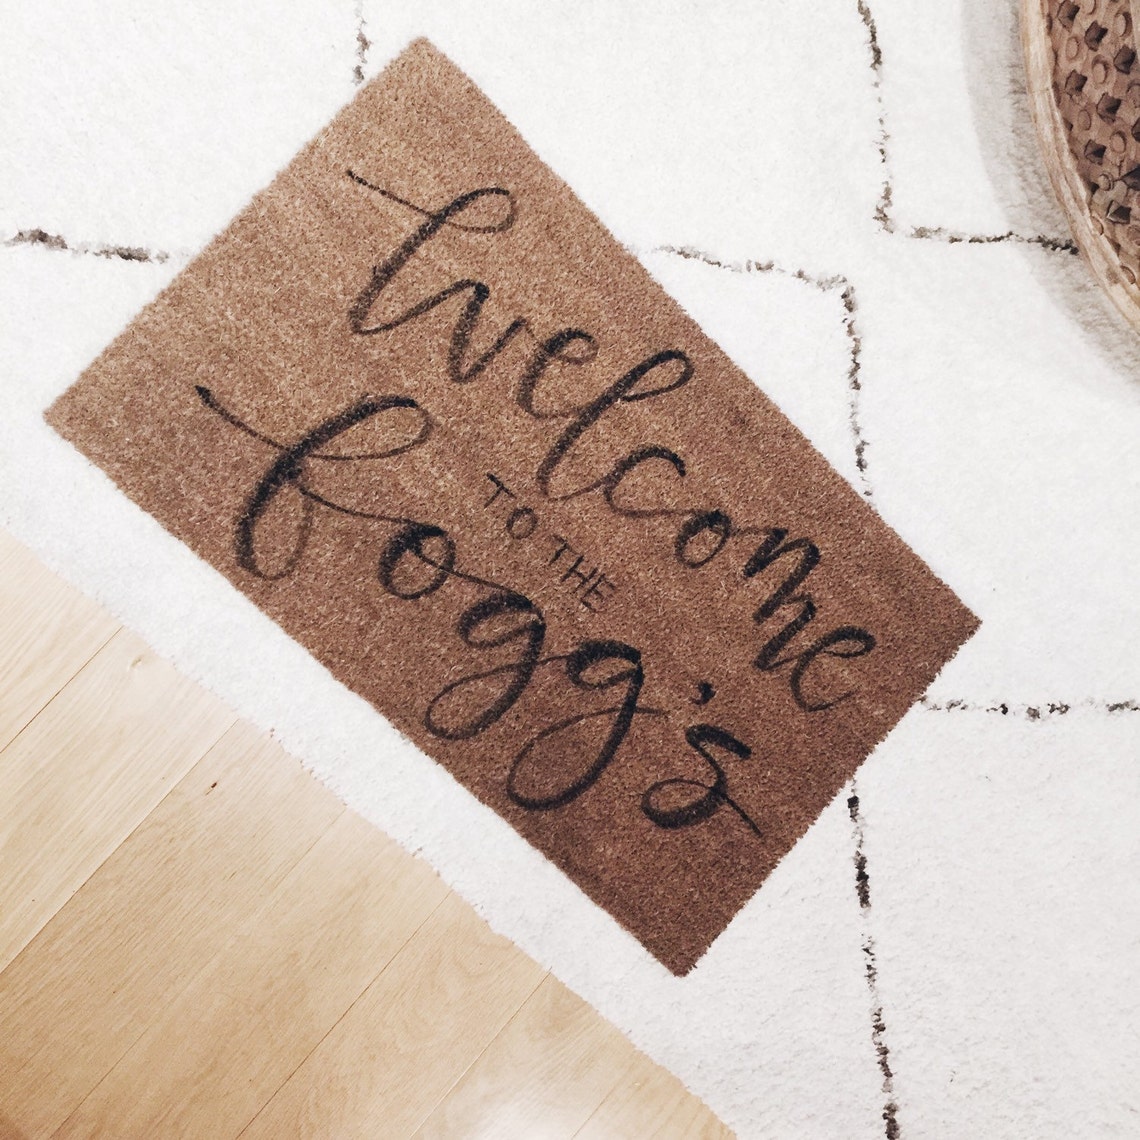 Welcome
TO THE
fogg's